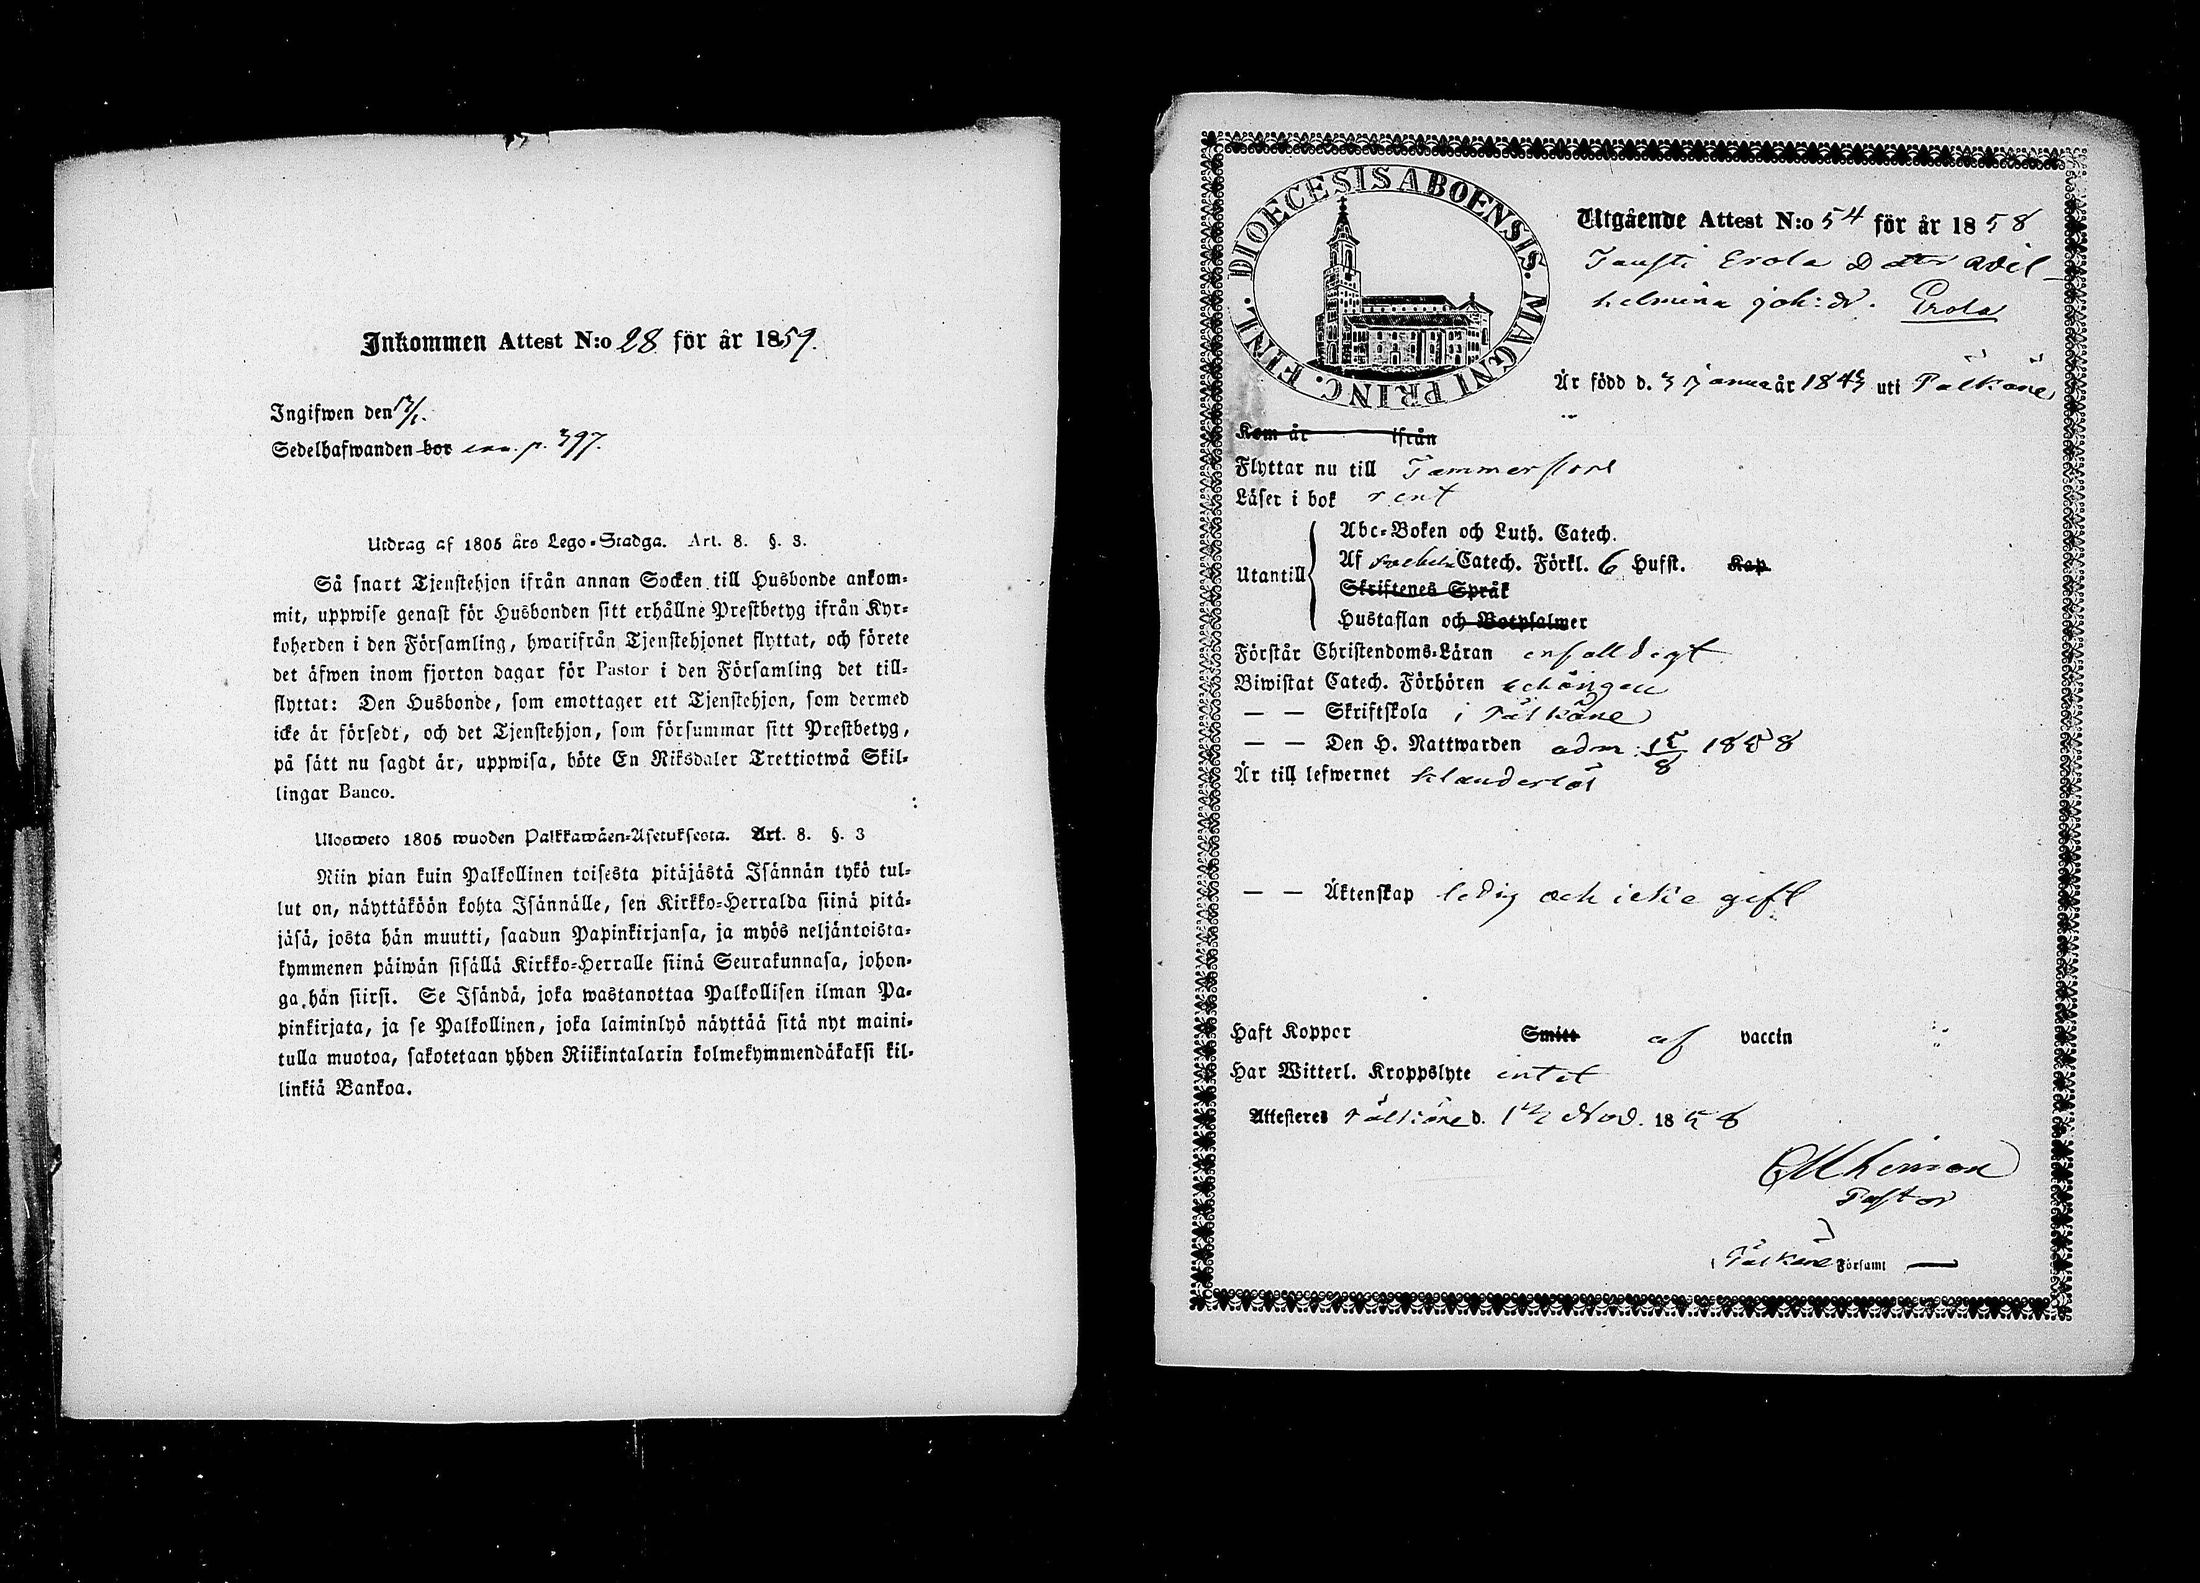 Inkommen Attest N:o 28 för år 1859.
Ingifwen den 13/1.
Sedelhafwanden bor p. 397.
Utdrag af 1805 års Lego-Stadga. Art. 8. §. 3.
Så snart Tjenstehjon ifrån annan Socken till Husbonde ankom-
mit, uppwise genast för Husbonden sitt erhållne Prestbetyg ifrån Kyr-
koherden i den Församling, hwarifrån Tjenstehjonet flyttat, och förete
det äfwen inom fjorton dagar för Pastor i den Församling det till-
flyttat: Den Husbonde, som emottager ett Tjenstehjon, som dermed
icke är försedt, och det Tjenstehjon, som försummar sitt Prestbetyg,
på sätt nu sagdt är, uppwisa, böte En Riksdaler Trettiotwå Skil-
lingar Banco.
Ulosweto 1805 wuoden Palkkawäen-Asetuksesta. Art. 8. §. 3
Niin pian kuin Palkollinen toisesta pitäjästä Isännän tykö tul-
lut on, näyttäköön kohta Isännälle, sen Kirkko-Herralda siinä pitä-
jäsä, josta hän muutti, saadun Papinkirjansa, ja myös neljäntoista-
kymmenen päiwän sisällä Kirkko-Herralle siinä Seurakunnasa, johon-
ga hän siirsi. Se Isändä, joka wastanottaa Palkollisen ilman Pa-
pinkirjata, ja se Palkollinen, joka laiminlyö näyttää sitä nyt maini-
tulla muotoa, sakotetaan yhden Riikintalarin kolmekymmendäkaksi kil-
linkiä Bankoa.
DIOECESIS ABOENSIS. MAGNI PRINC. FINL.
Utgående Attest N:o 54 för år 1858
Erola Dotter Wil-
helmina Joh:dr. Erola
Är född d. 3 Januar år 1843 uti Pälkäne
Kom år ifrån
Flyttar nu till Tammerfors
Läser i bok rent
Utantill
Abc-Boken och Luth. Catech.
Af Svebel. Catech. Förkl. 6 Hufst. Kap
Skriftenes Språk
Hustaflan och Botpsalmer
Förstår Christendoms-Läran enfalldigt
Biwistat Catech. Förhören
— — Skriftskola i Pälkäne
— — Den H. Nattwarden adm. 15/8 1858
Är till lefwernet klanderlös
— — Äktenskap ledig och icke gift
Haft Koppor Smitt af vaccin
Har Witterl. Kroppslyte intet
Attesteres Pälkäne d. 12 Nov. 1858
Pastor
i Pälkäne Församl —